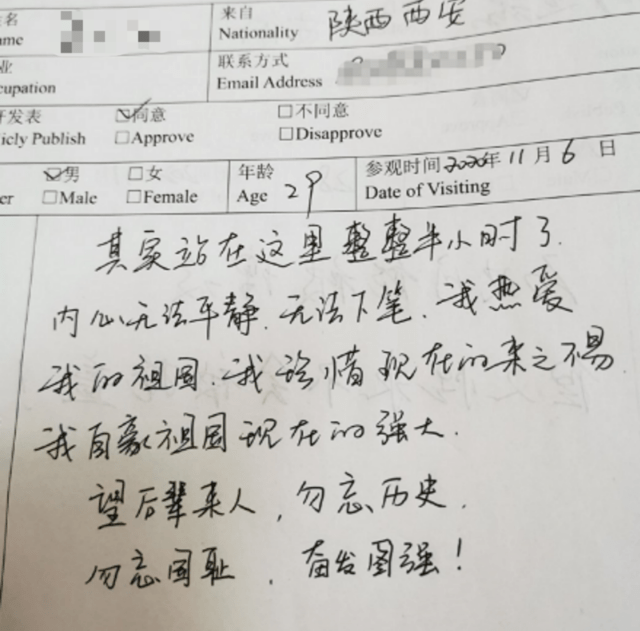 姓名 来自 陕西西安
ame Nationality
业 联系方式
cupation Email Address
开发表 ☑同意 □不同意
icly Publish □Approve □Disapprove
☑男 □女 年龄 29 参观时间 2020年11月6日
er □Male □Female Age Date of Visiting
其实站在这里整整半小时了.
内心无法平静.无法下笔.我热爱
我的祖国.我珍惜现在的来之不易
我自豪祖国现在的强大.
望后辈来人,勿忘历史.
勿忘国耻,奋发图强!